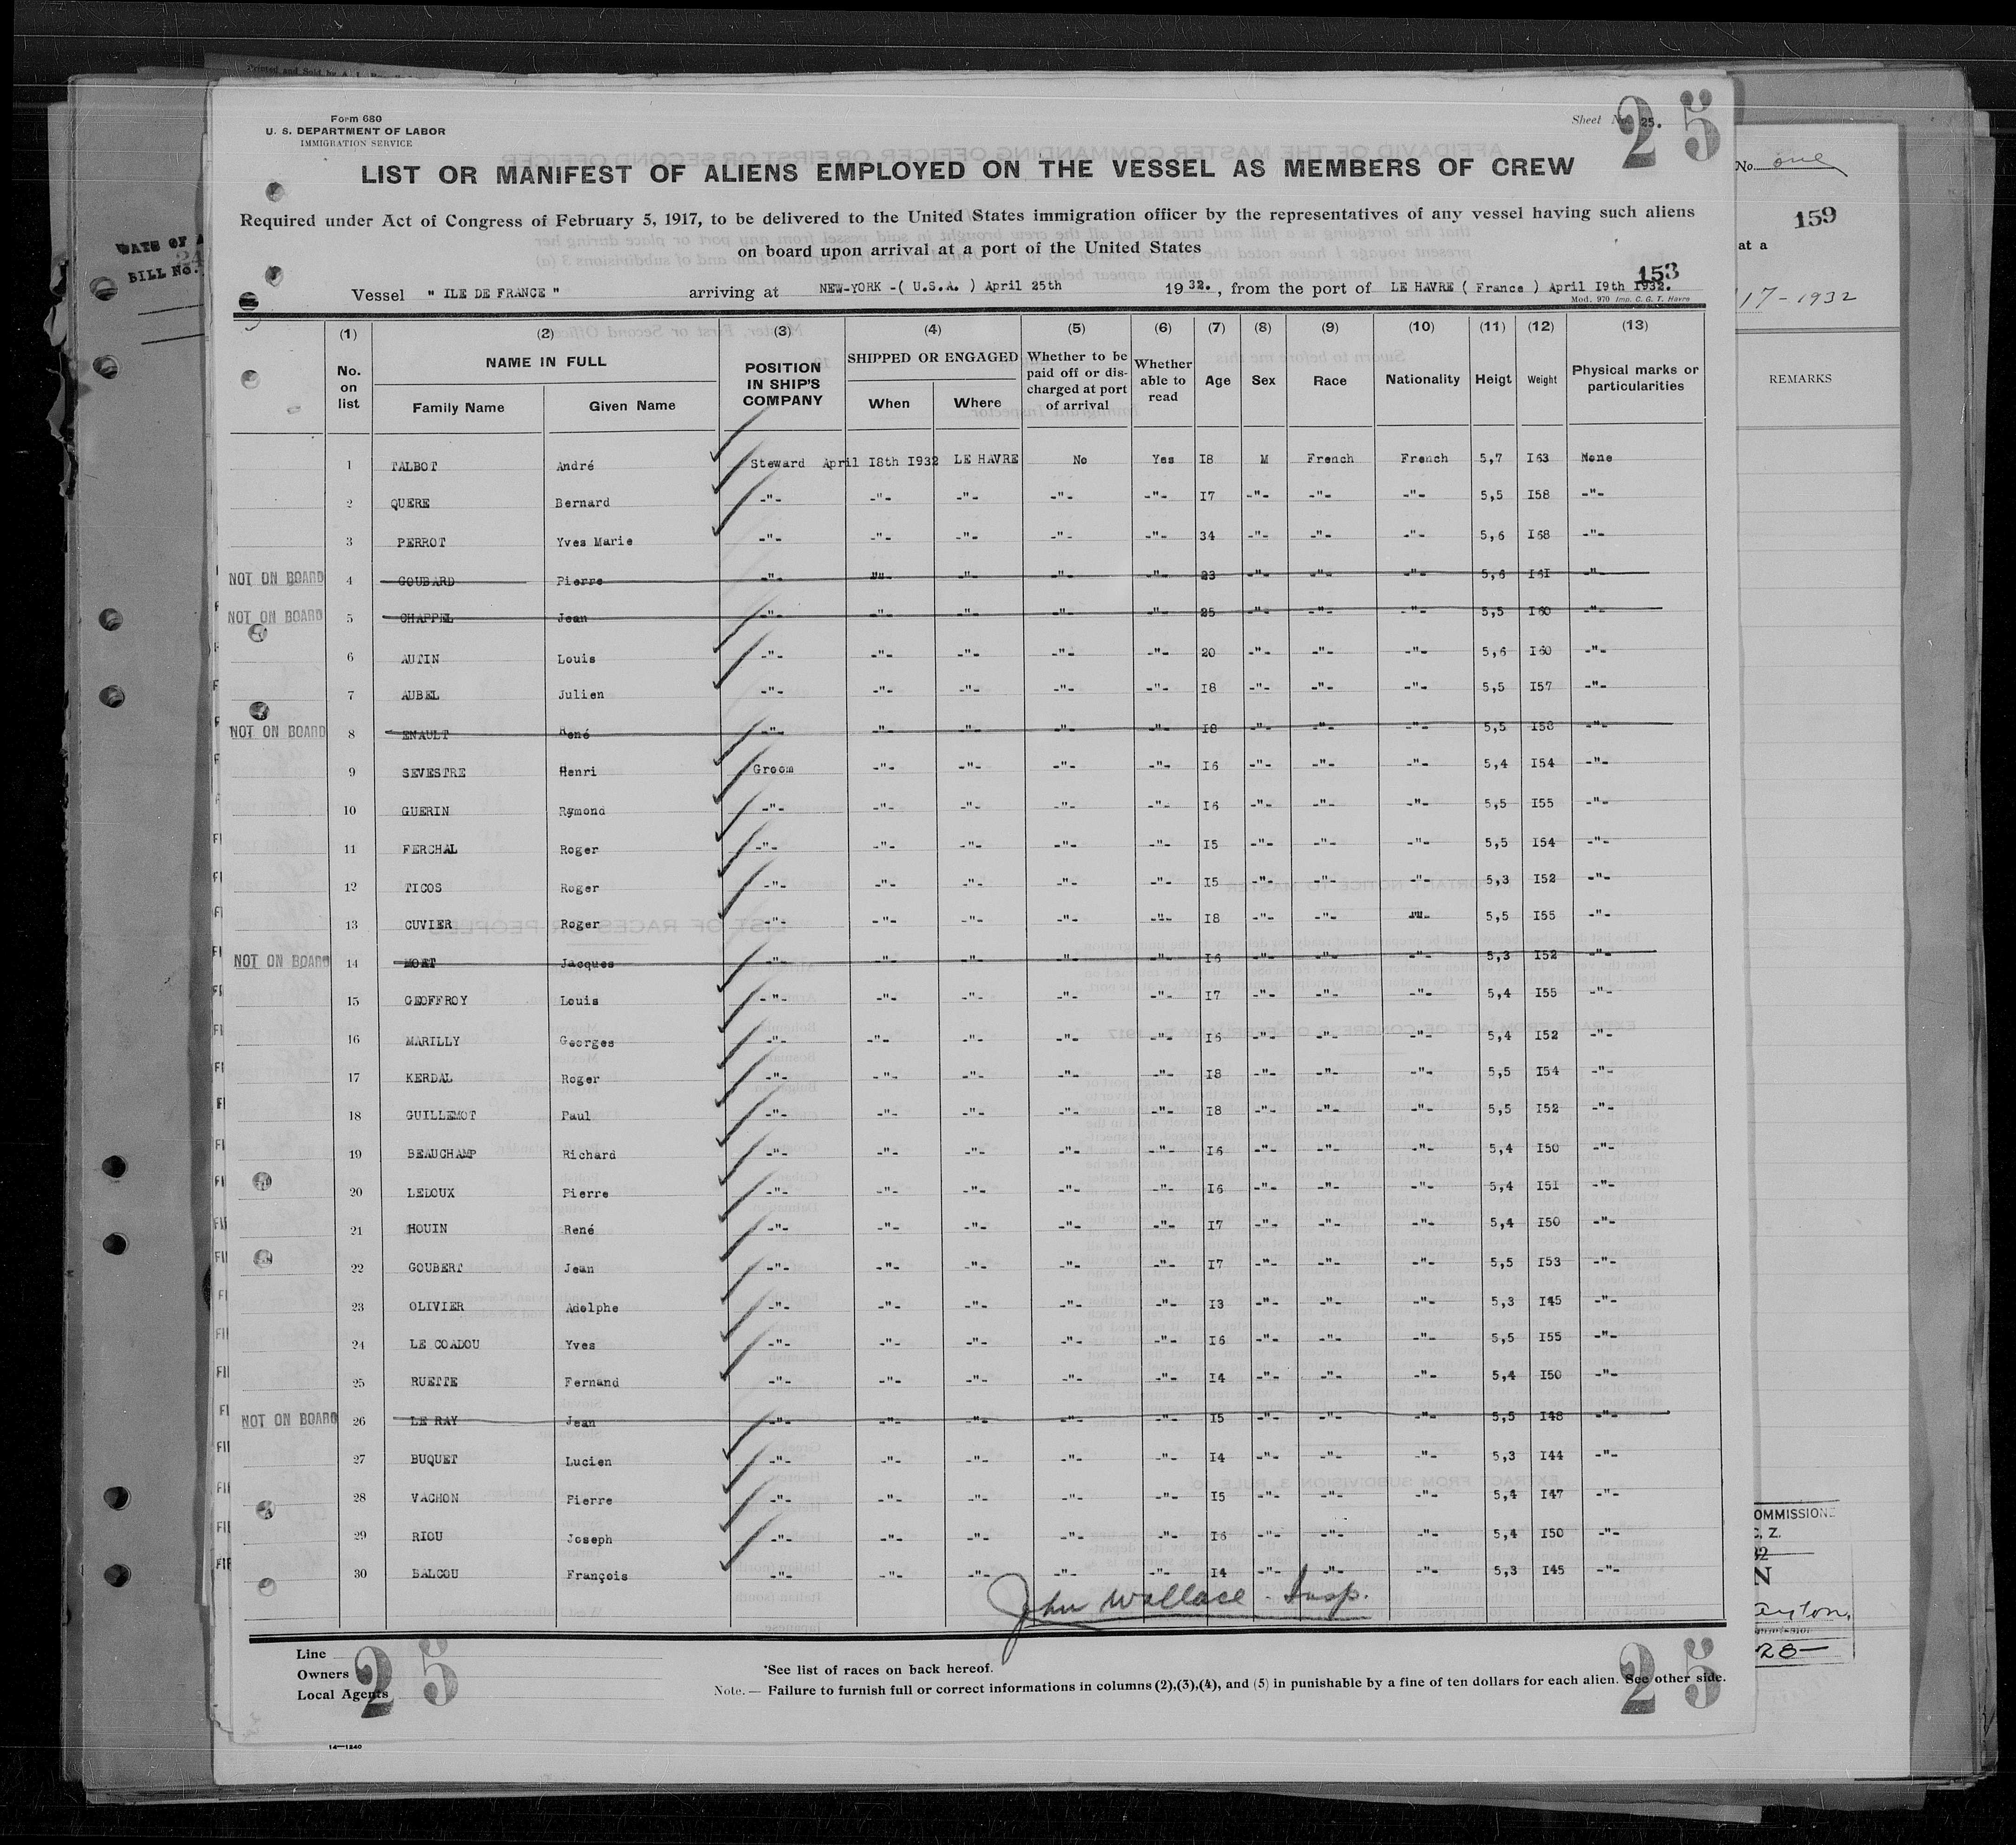 Form 680
U. S. DEPARTMENT OF LABOR
IMMIGRATION SERVICE
Sheet No 25.
25
LIST OR MANIFEST OF ALIENS EMPLOYED ON THE VESSEL AS MEMBERS OF CREW
Required under Act of Congress of February 5, 1917, to be delivered to the United States immigration officer by the representatives of any vessel having such aliens
on board upon arrival at a port of the United States
153
Vessel " ILE DE FRANCE " arriving at NEW-YORK -( U.S.A. ) April 25th 1932. , from the port of LE HAVRE ( France ) April I9th I932.
Mod. 970 Imp. C. G. T. Havre
(1) (2) (3) (4) (5) (6) (7) (8) (9) (10) (11) (12) (13)
No. on list NAME IN FULL Family Name Given Name POSITION IN SHIP'S COMPANY SHIPPED OR ENGAGED When Where Whether to be paid off or discharged at port of arrival Whether able to read Age Sex Race Nationality Heigt Weight Physical marks or particularities
1 TALBOT André Steward April I8th I932 LE HAVRE No Yes I8 M French French 5,7 I63 None
2 QUERE Bernard -"- -"- -"- -"- -"- I7 -"- -"- -"- 5,5 I58 -"-
3 PERROT Yves Marie -"- -"- -"- -"- -"- 34 -"- -"- -"- 5,6 I68 -"-
NOT ON BOARD 4 GOUBARD Pierre -"- -"- -"- -"- -"- 23 -"- -"- -"- 5,6 I6I -"-
NOT ON BOARD 5 CHAPPEL Jean -"- -"- -"- -"- -"- 25 -"- -"- -"- 5,5 I60 -"-
6 AUTIN Louis -"- -"- -"- -"- -"- 20 -"- -"- -"- 5,6 I60 -"-
7 AUBEL Julien -"- -"- -"- -"- -"- I8 -"- -"- -"- 5,5 I57 -"-
NOT ON BOARD 8 ENAULT René -"- -"- -"- -"- -"- I8 -"- -"- -"- 5,5 I58 -"-
9 SEVESTRE Henri Groom -"- -"- -"- -"- I6 -"- -"- -"- 5,4 I54 -"-
10 GUERIN Rymond -"- -"- -"- -"- -"- I6 -"- -"- -"- 5,5 I55 -"-
11 FERCHAL Roger -"- -"- -"- -"- -"- I5 -"- -"- -"- 5,5 I54 -"-
12 TICOS Roger -"- -"- -"- -"- -"- I5 -"- -"- -"- 5,3 I52 -"-
13 CUVIER Roger -"- -"- -"- -"- -"- I8 -"- -"- -"- 5,5 I55 -"-
NOT ON BOARD 14 MOET Jacques -"- -"- -"- -"- -"- I6 -"- -"- -"- 5,3 I52 -"-
15 GEOFFROY Louis -"- -"- -"- -"- -"- I7 -"- -"- -"- 5,4 I55 -"-
16 MARILLY Georges -"- -"- -"- -"- -"- I6 -"- -"- -"- 5,4 I52 -"-
17 KERDAL Roger -"- -"- -"- -"- -"- I8 -"- -"- -"- 5,5 I54 -"-
18 GUILLEMOT Paul -"- -"- -"- -"- -"- I8 -"- -"- -"- 5,5 I52 -"-
19 BEAUCHAMP Richard -"- -"- -"- -"- -"- I6 -"- -"- -"- 5,4 I50 -"-
20 LEDOUX Pierre -"- -"- -"- -"- -"- I6 -"- -"- -"- 5,4 I5I -"-
21 HOUIN René -"- -"- -"- -"- -"- I7 -"- -"- -"- 5,4 I50 -"-
22 GOUBERT Jean -"- -"- -"- -"- -"- I7 -"- -"- -"- 5,5 I53 -"-
23 OLIVIER Adolphe -"- -"- -"- -"- -"- I3 -"- -"- -"- 5,3 I45 -"-
24 LE COADOU Yves -"- -"- -"- -"- -"- I6 -"- -"- -"- 5,5 I55 -"-
25 RUETTE Fernand -"- -"- -"- -"- -"- I4 -"- -"- -"- 5,4 I50 -"-
NOT ON BOARD 26 LE RAY Jean -"- -"- -"- -"- -"- I5 -"- -"- -"- 5,5 I48 -"-
27 BUQUET Lucien -"- -"- -"- -"- -"- I4 -"- -"- -"- 5,3 I44 -"-
28 VACHON Pierre -"- -"- -"- -"- -"- I5 -"- -"- -"- 5,4 I47 -"-
29 RIOU Joseph -"- -"- -"- -"- -"- I6 -"- -"- -"- 5,4 I50 -"-
30 BALCOU François -"- -"- -"- -"- -"- I4 -"- -"- -"- 5,3 I45 -"-
John Wallace Insp.
Line
Owners
Local Agents
25
*See list of races on back hereof.
Note. — Failure to furnish full or correct informations in columns (2),(3),(4), and (5) in punishable by a fine of ten dollars for each alien. See other side.
25
14—1240
No. one
159
at a
17-1932
REMARKS
BILL No.